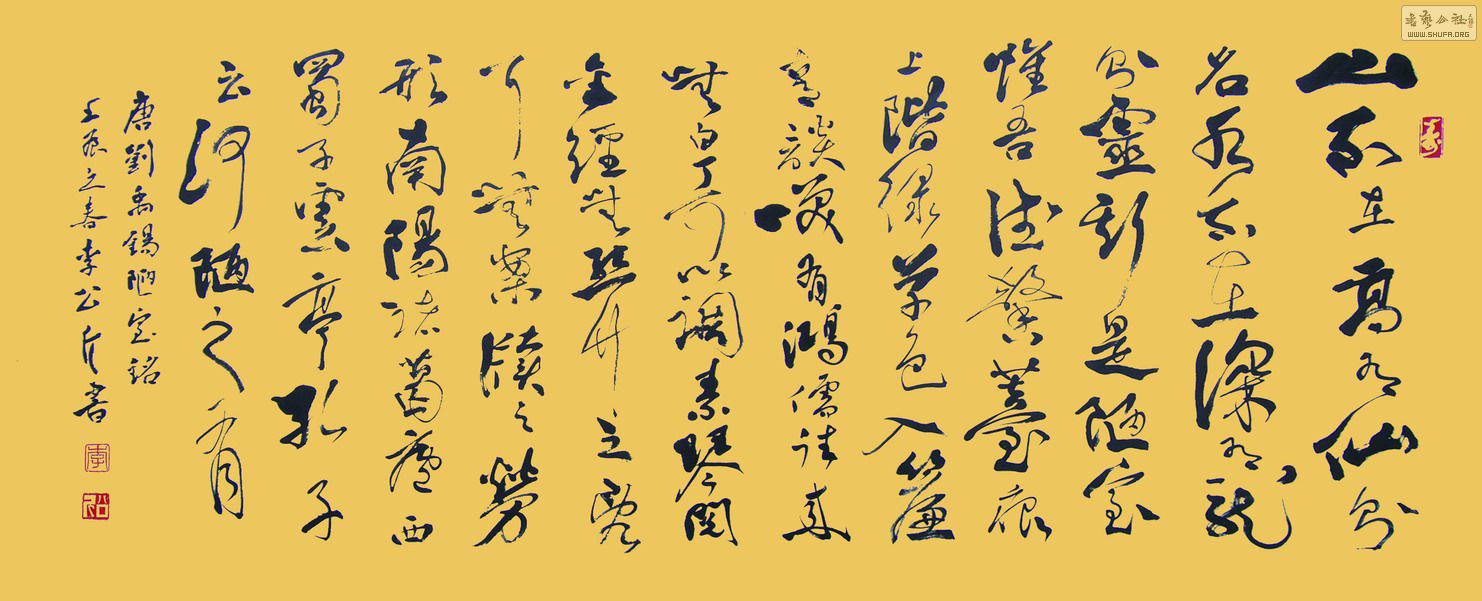 山不在高有仙則
名水不在深有龍
則靈斯是陋室
惟吾德馨薹痕
上階綠草色入簾
青談咲有鴻儒往來
無白丁可以調素琴閱
金經無絲竹之亂
耳無案牘之勞
形南陽諸葛廬西
蜀子雲亭孔子
云何陋之有
唐劉禹錫陋室銘
壬辰之春李公書
李
書藝公社
WWW.SHUFA.ORG